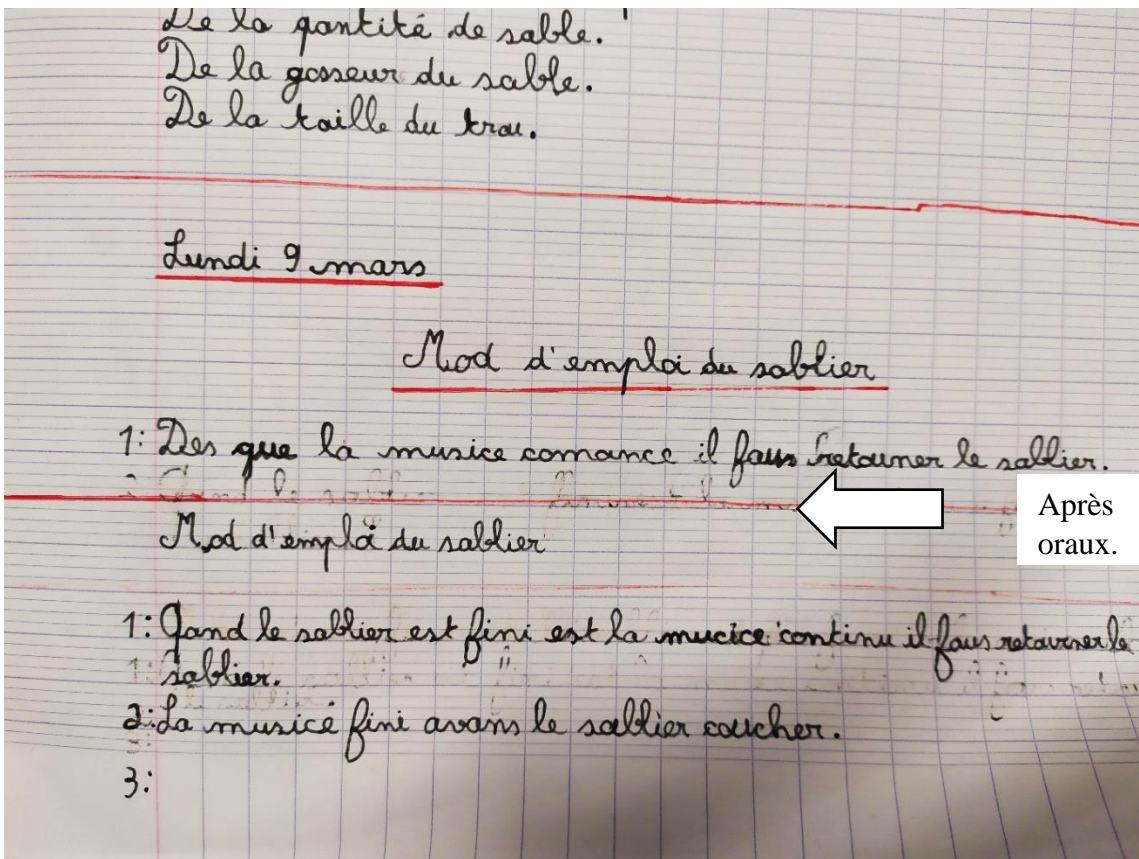 De la qantité de sable.
De la gosseur du sable.
De la taille du trou.
Lundi 9 mars
Mod d'emploi du sablier
1: Des que la musice comance il faus retourner le sablier.
Après
oraux.
Mod d'emploi du sablier
1: Qand le sablier est fini est la mucice continu il faus retourner le
sablier.
2: La musice fini avans le sablier coucher.
3: